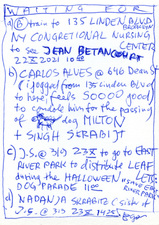 WAITING FOR
a) B train to 135 LINDEN BLVD
BROOKLYN
NY CONGRETIONAL NURSING
CENTER
to see JEAN BETANCOURT
22 X 2021 10:00
b) CARLOS ALVES @ 646 Dean st
I jogged from 135 linden blvd
to here feels SOOOO good
to condole him for the passing
of dog MILTON
+ SINGH SKRABIJT
c) J.S. @ 319 23 X to go to EAST
RIVER PARK to distribute LEAF
during the HALLOWEEN
DOG PARADE 11:00
LETS
SAVE EAST
RIVER
PARK
d) NADANJA SKRABITZ (sister of
J.S. @ 313 23 X 1425